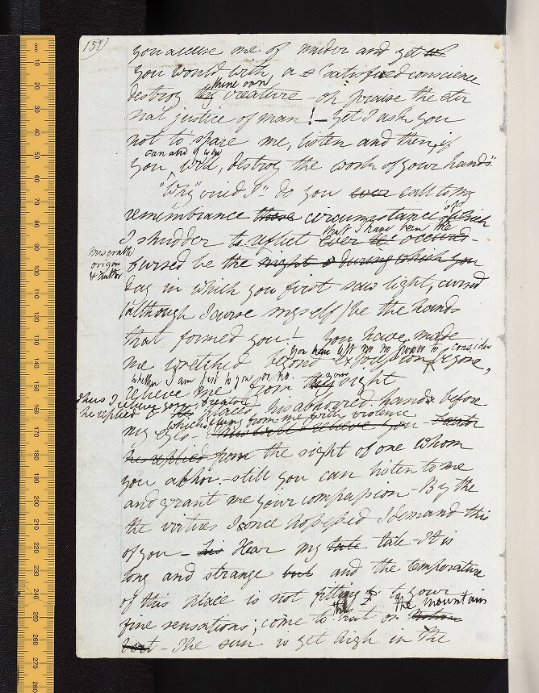 151)
you accuse me of murder and yet
you would with, a satisfied conscience
destroy thine own creature oh praise the eter
nal justice of man! – Yet I ask you
not to spare me, listen and then if
can and if why
you will, destroy the work of your hands".
"Why" cried I "do you ever call to my
remembrance those circumstances of which
that I have been the
I shudder to reflect ever the
miserable
origin
& author
cursed be the night during which you
day in which you first saw light, cursed
(although I curse myself) be the hands
that formed you! You have made
me wretched beyond expression begone,
You have left me no power to consider
whether I am just to you or no.
relieve me from your sight
thus I relieve you, & creator
he replied & placed his abhorred hands before
which I flung from me with violence
my eyes – thus
he replied from the sight of one whom
you abhor. still you can listen to me
and grant me your compassion – By the
the virtues I once possessed I demand this
of you – Hear my tale tale – It is
long and strange but and the temperature
of this place is not fitting to your
fine sensations; come to the hut on the mountain
The sun is yet high in the
10
20
30
40
50
60
70
80
90
100
110
120
130
140
150
160
170
180
190
200
210
220
230
240
250
260